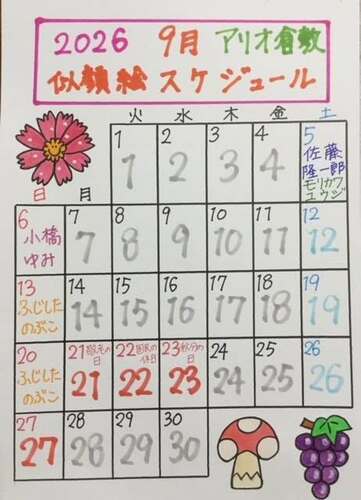 2026 9月 アリオ倉敷
似顔絵 スケジュール
火 水 木 金 土
1 2 3 4 5
1 2 3 4 佐藤
隆一郎
モリカワ
ユウジ
日 月
6 7 8 9 10 11 12
小橋 7 8 9 10 11 12
ゆみ
13 14 15 16 17 18 19
ふじした 14 15 16 17 18 19
のぶこ
20 21敬老の日 22国民の休日 23秋分の日 24 25 26
ふじした 21 22 23 24 25 26
のぶこ
27 28 29 30
27 28 29 30